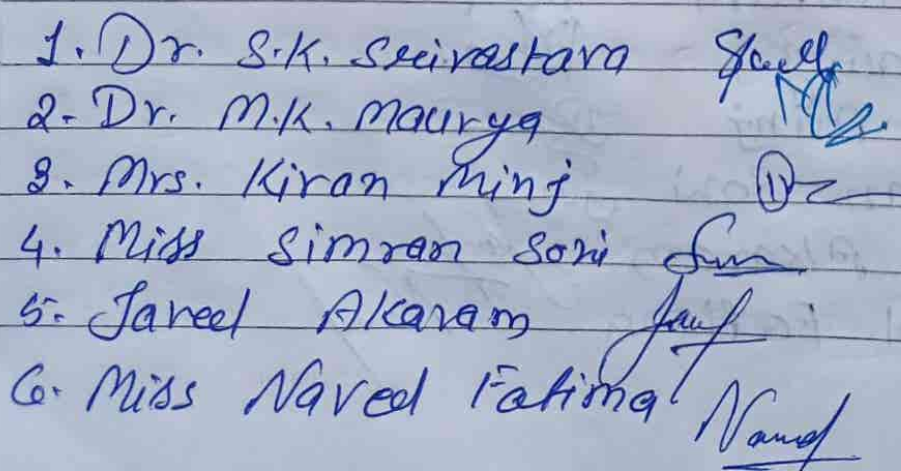 1. Dr. S.K. Srivastava
2. Dr. M.K. Maurya
3. Mrs. Kiran Minj
4. Miss Simran Soni
5. Javeel Akaram
6. Miss Naved Fatima